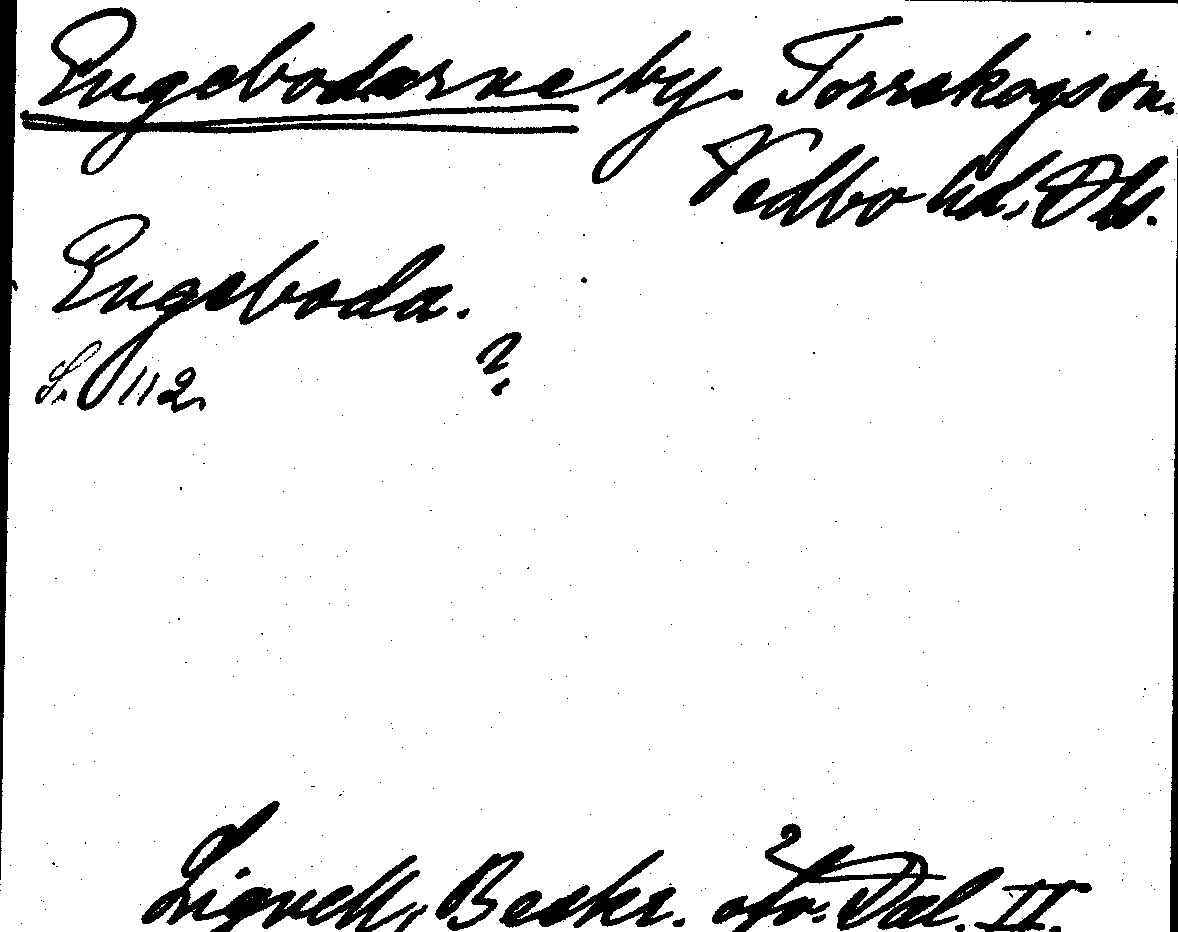 Engebodarne by. Torrskogs sn.
Vedbo hd. Dls.
Engeboda.
S. 112. ?
Lignell, Beskr. öfv. Dal. II.